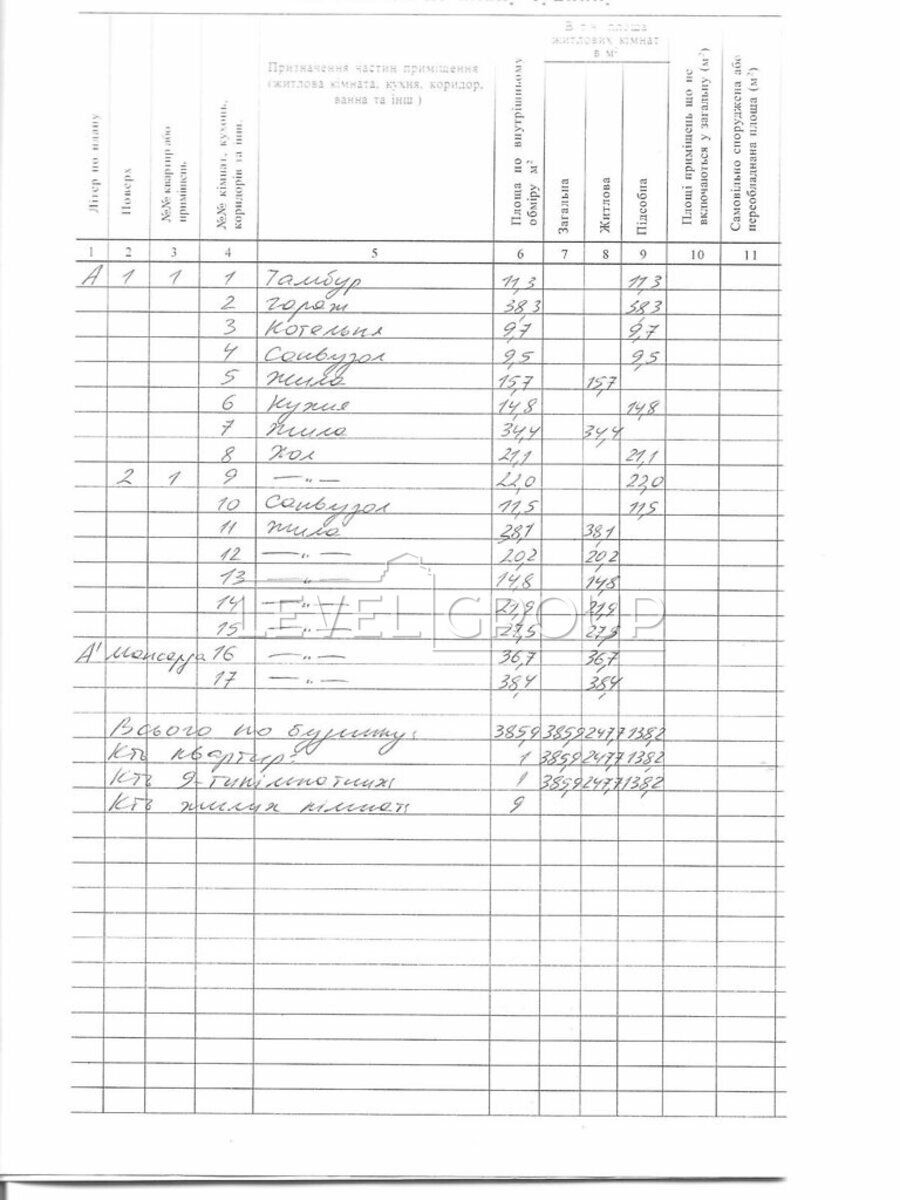 В т.ч. площа
житлових кімнат
в м²
Призначення частин приміщення
(житлова кімната, кухня, коридор,
ванна та інш.)
Літер по плану
Поверх
№№ квартир або
приміщень
№№ кімнат, кухонь,
коридорів та інш.
Площа по внутрішньому
обміру м²
Загальна
Житлова
Підсобна
Площі приміщень що не
включаються у загальну (м²)
Самовільно споруджена або
переобладнана площа (м²)
1 2 3 4 5 6 7 8 9 10 11
А 1 1 1 Тамбур 11,3 11,3
2 Гараж 38,3 38,3
3 Котельня 9,7 9,7
4 Санвузол 9,5 9,5
5 Жила 15,7 15,7
6 Кухня 14,8 14,8
7 Жила 34,4 34,4
8 Хол 21,1 21,1
2 1 9 —"— 22,0 22,0
10 Санвузол 11,5 11,5
11 Жила 38,1 38,1
12 —"— 20,2 20,2
13 —"— 14,8 14,8
14 —"— 21,9 21,9
15 —"— 27,5 27,5
А' мансарда 16 —"— 36,7 36,7
17 —"— 38,4 38,4
LEVEL GROUP
Всього по будинку: 385,9 385,9 247,7 138,2
Кть квартир: 1 385,9 247,7 138,2
Кть 9-тикімнатних: 1 385,9 247,7 138,2
Кть жилих кімнат: 9